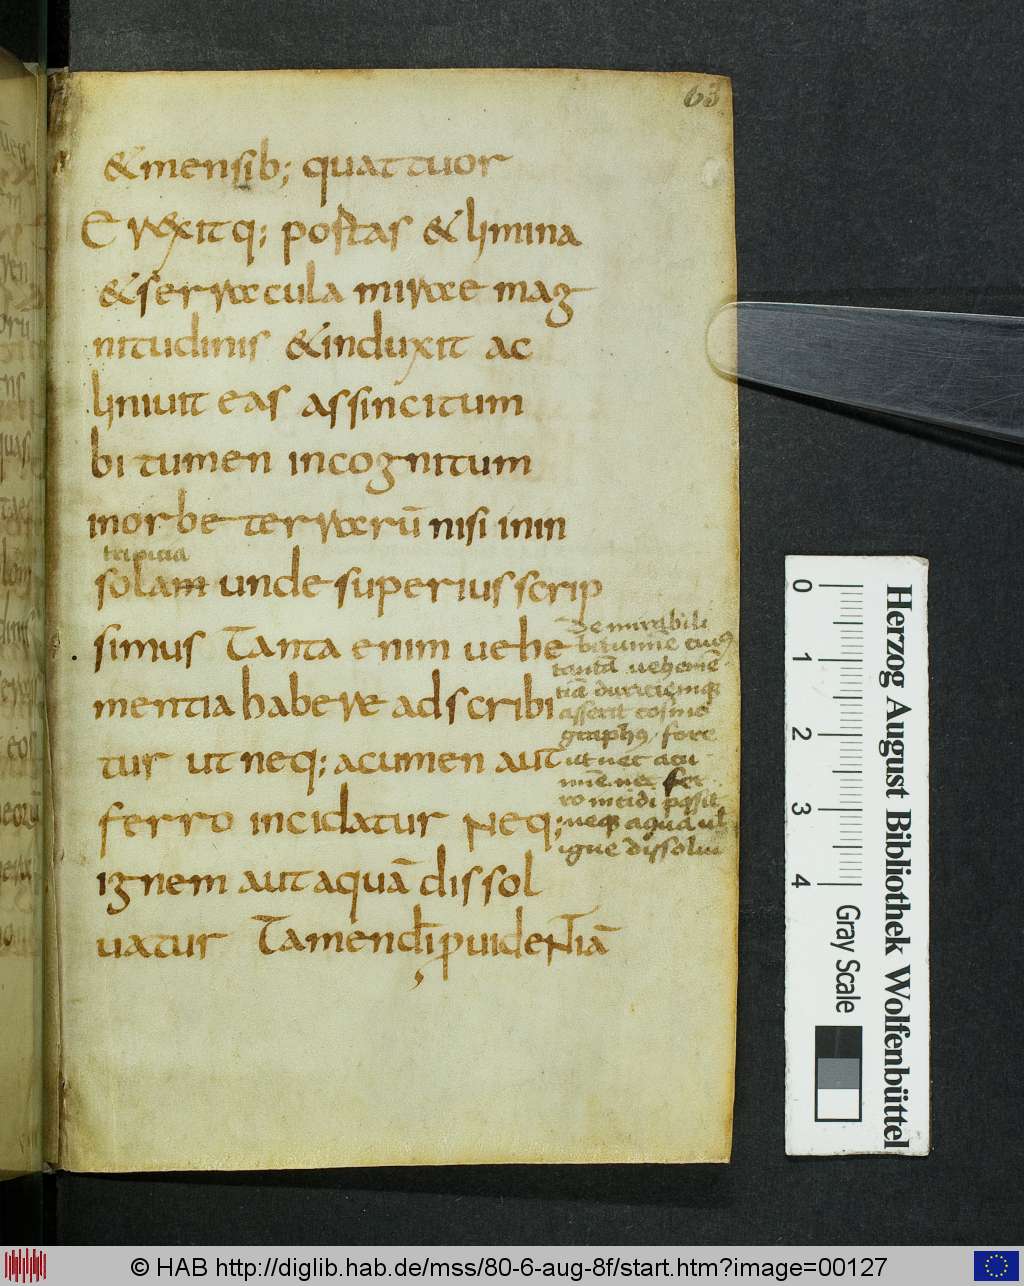 63
& mensib; quattuor
Erexitq; portas & limina
& serracula mirae mag
nitudinis & induxit ac
liniuit eas assincitum
bitumen incognitum
in orbe terrarū nisi in in
tripicia
solam unde superius scrip
simus Tanta enim uehe
mentia habere adscribi
tur ut neq; acumen aut
ferro incidatur Neq;
ignem aut aquā dissol
uatur Tamen dī puidentiā
De mirabili
bitumine eius
tantā uehemē
tiā duritiemq
asserit cosmo
graphus fore
ut nec acu
mine nec fer
ro incidi possit
neq aqua ul
igne dissolui
Herzog August Bibliothek Wolfenbüttel
0 1 2 3 4
Gray Scale
© HAB http://diglib.hab.de/mss/80-6-aug-8f/start.htm?image=00127